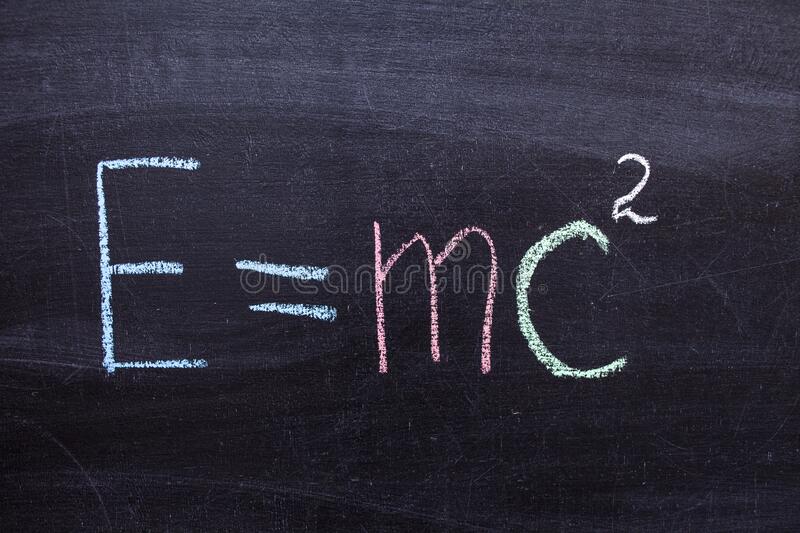 E=mc²
dreamstime